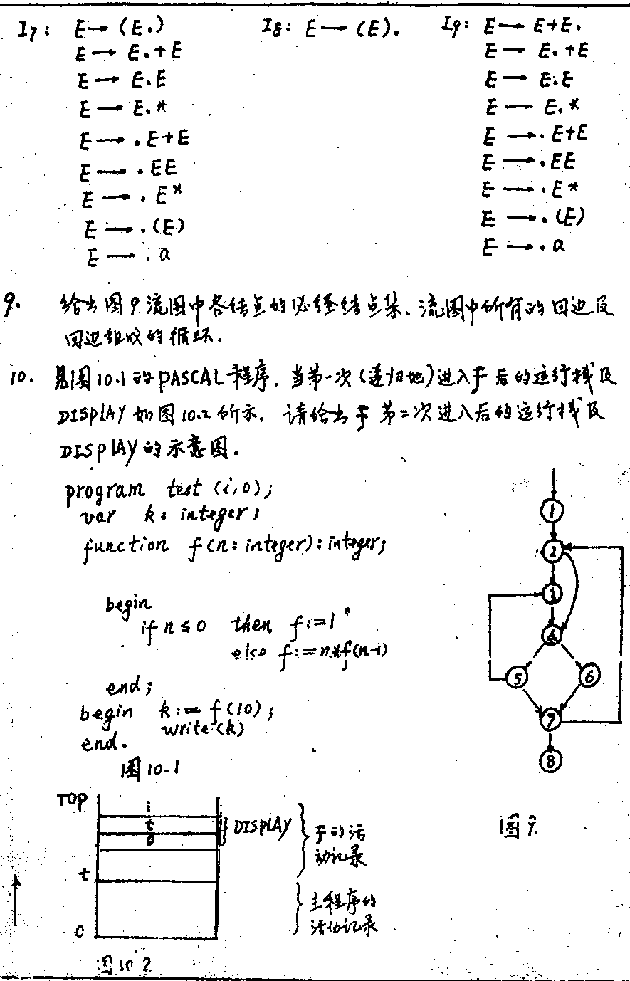 I7: E→(E.) I8: E→(E). I9: E→E+E.
E→E.+E E→E.+E
E→E.E E→E.E
E→E.* E→E.*
E→.E+E E→.E+E
E→.EE E→.EE
E→.E* E→.E*
E→.(E) E→.(E)
E→.a E→.a
9. 给出图9流图中各结点的必经结点集、流图中所有的回边及
回边组成的循环.
10. 见图10.1的PASCAL程序, 当第一次(递归地)进入f后的运行栈及
DISPLAY如图10.2所示, 请给出f第二次进入后的运行栈及
DISPLAY的示意图.
program test (i,o);
var k: integer;
function f(n: integer): integer;
begin
if n≤0 then f:=1
else f:=n*f(n-1)
end;
begin k:=f(10);
write(k)
end.
图10-1
1
2
3
4
5 6
7
8
图9.
TOP
t
0
DISPLAY
f的活
动记录
t
主程序的
活动记录
0
图10.2